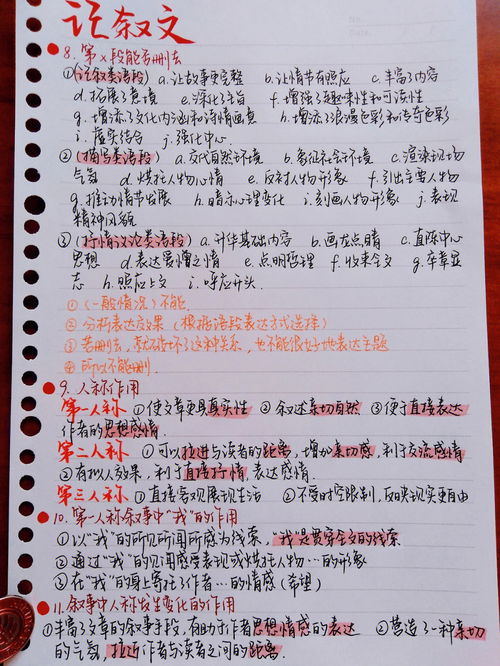 记叙文
8. 第x段能否删去
①(记叙类语段) a.让故事更完整 b.让情节有照应 c.丰富了内容
d.拓展了意境 e.深化了主旨 f.增强了趣味性和可读性
g.增添了文化内涵和诗情画意 h.增添了浪漫色彩和传奇色彩
i.虚实结合 j.强化中心
②(描写类语段) a.交代自然环境 b.象征社会环境 c.渲染现场
气氛 d.烘托人物心情 e.反衬人物形象 f.引出主要人物
g.推动情节发展 h.暗示心理变化 i.刻画人物形象 j.表现
精神风貌
③(抒情议论类语段) a.升华基础内容 b.画龙点睛 c.直陈中心
思想 d.表达爱憎之情 e.点明哲理 f.收束全文 g.卒章显
志 h.照应上文 i.呼应开头.
①(一般情况)不能.
②分析表达效果(根据语段表达方式选择)
③若删去,就破坏了这种关系,也不能很好地表达主题
④所以不能删.
9. 人称作用
第一人称 ①使文章更具真实性 ②叙述亲切自然 ③便于直接表达
作者的思想感情.
第二人称 ①可以拉进与读者的距离,增加亲切感,利于交流感情
②有拟人效果,利于直接抒情,表达感情.
第三人称 ①直接客观展现生活 ②不受时空限制,反映现实更自由
10. 第一人称叙事中“我”的作用
①以“我”的所见所闻所感为线索,“我”是贯穿全文的线索
②通过“我”的见闻感受表现或烘托人物…的形象
③在“我”的身上寄托了作者…的情感(希望)
11. 叙事中人称发生变化的作用
①丰富了文章的叙事手段,有助于作者思想情感的表达 ②营造了一种亲切
的气氛,拉近作者与读者之间的距离.